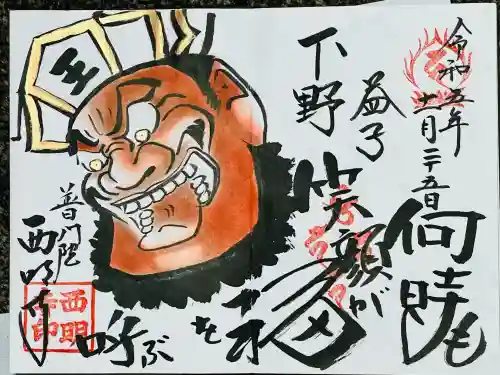 令和五年
十一月二十五日
何時も
笑顔が
福を
呼ぶ
下野
益子
普門院
西明寺
王
西明
寺印